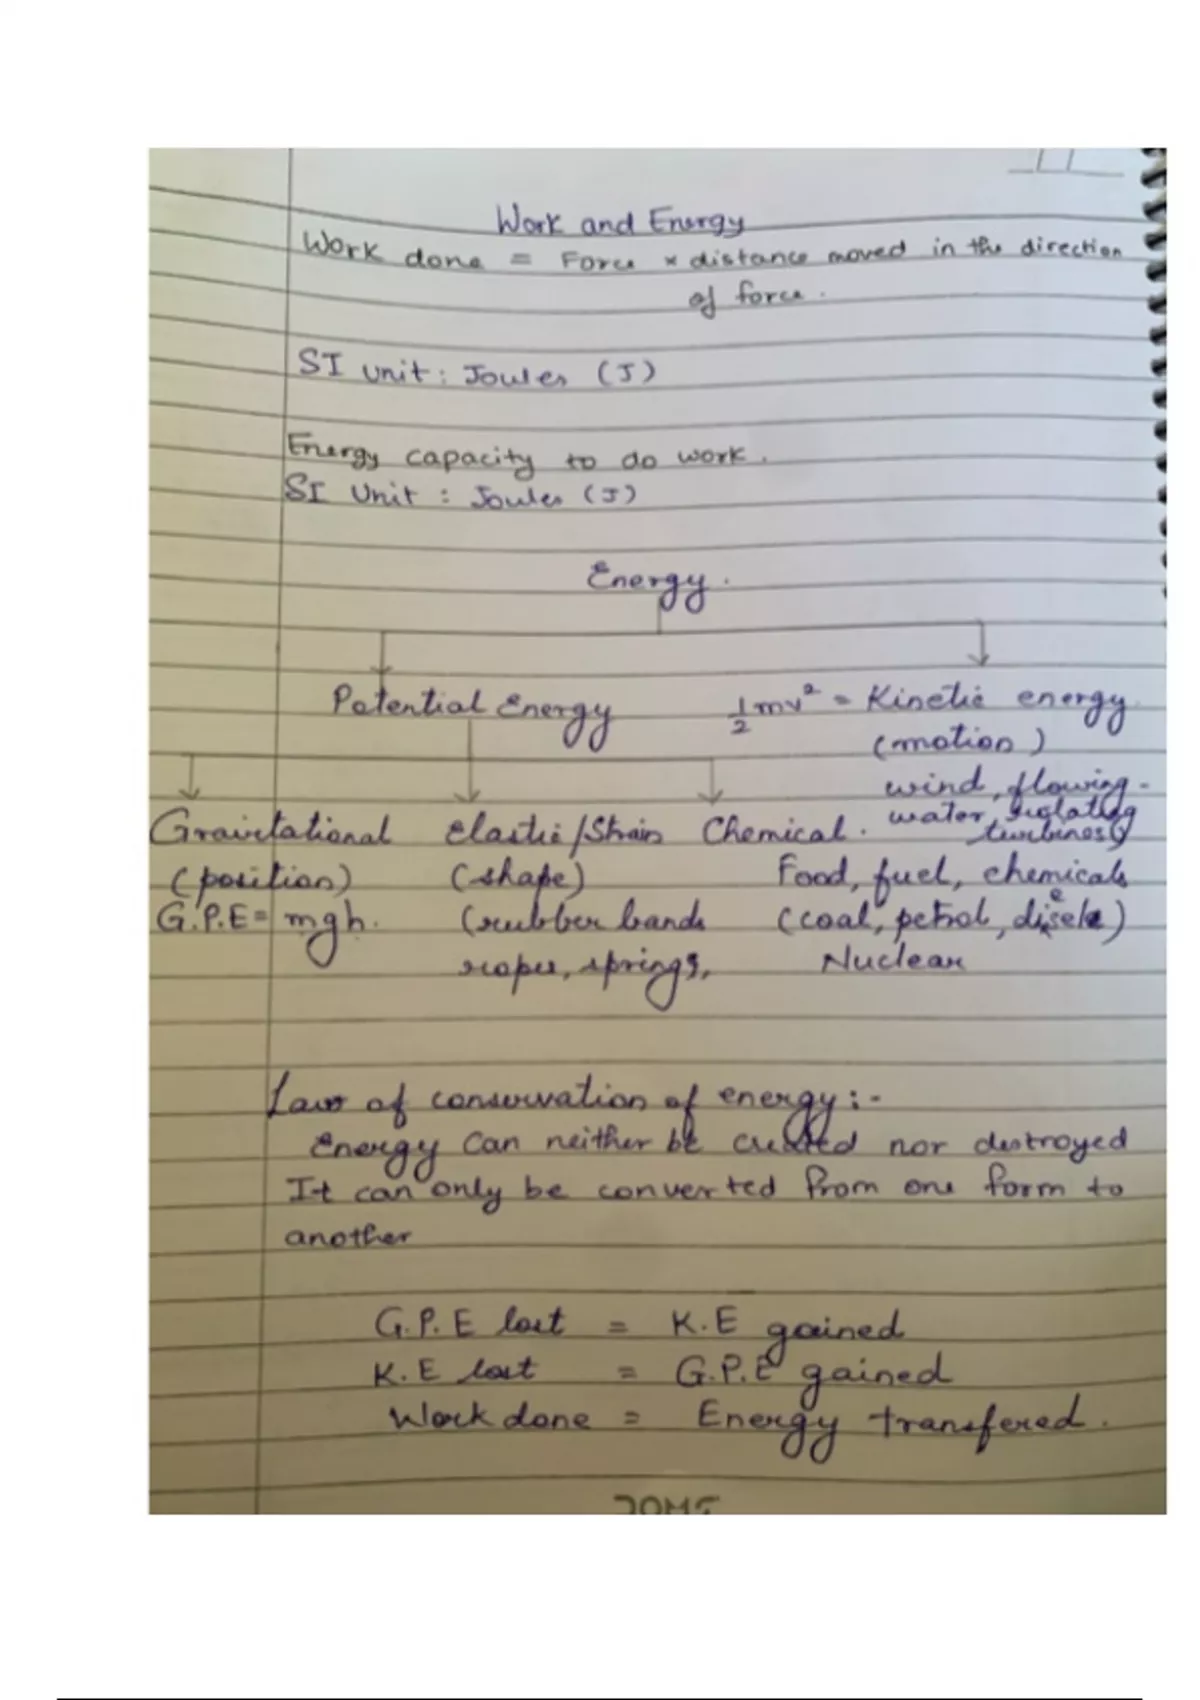 Work and Energy
Work done = Force × distance moved in the direction
of force.
SI unit: Joules (J)
Energy capacity to do work.
SI Unit : Joules (J)
Energy.
Potential Energy ½mv² = Kinetic energy
(motion)
wind, flowing
water, rotating
turbines)
Gravitational Elastic/Strain Chemical.
(position) (shape) Food, fuel, chemicals
G.P.E = mgh. (rubber bands (coal, petrol, diesel)
ropes, springs, Nuclear
Law of conservation of energy:-
Energy can neither be created nor destroyed
It can only be converted from one form to
another
G.P.E lost = K.E gained
K.E lost = G.P.E gained
Work done = Energy transfered.